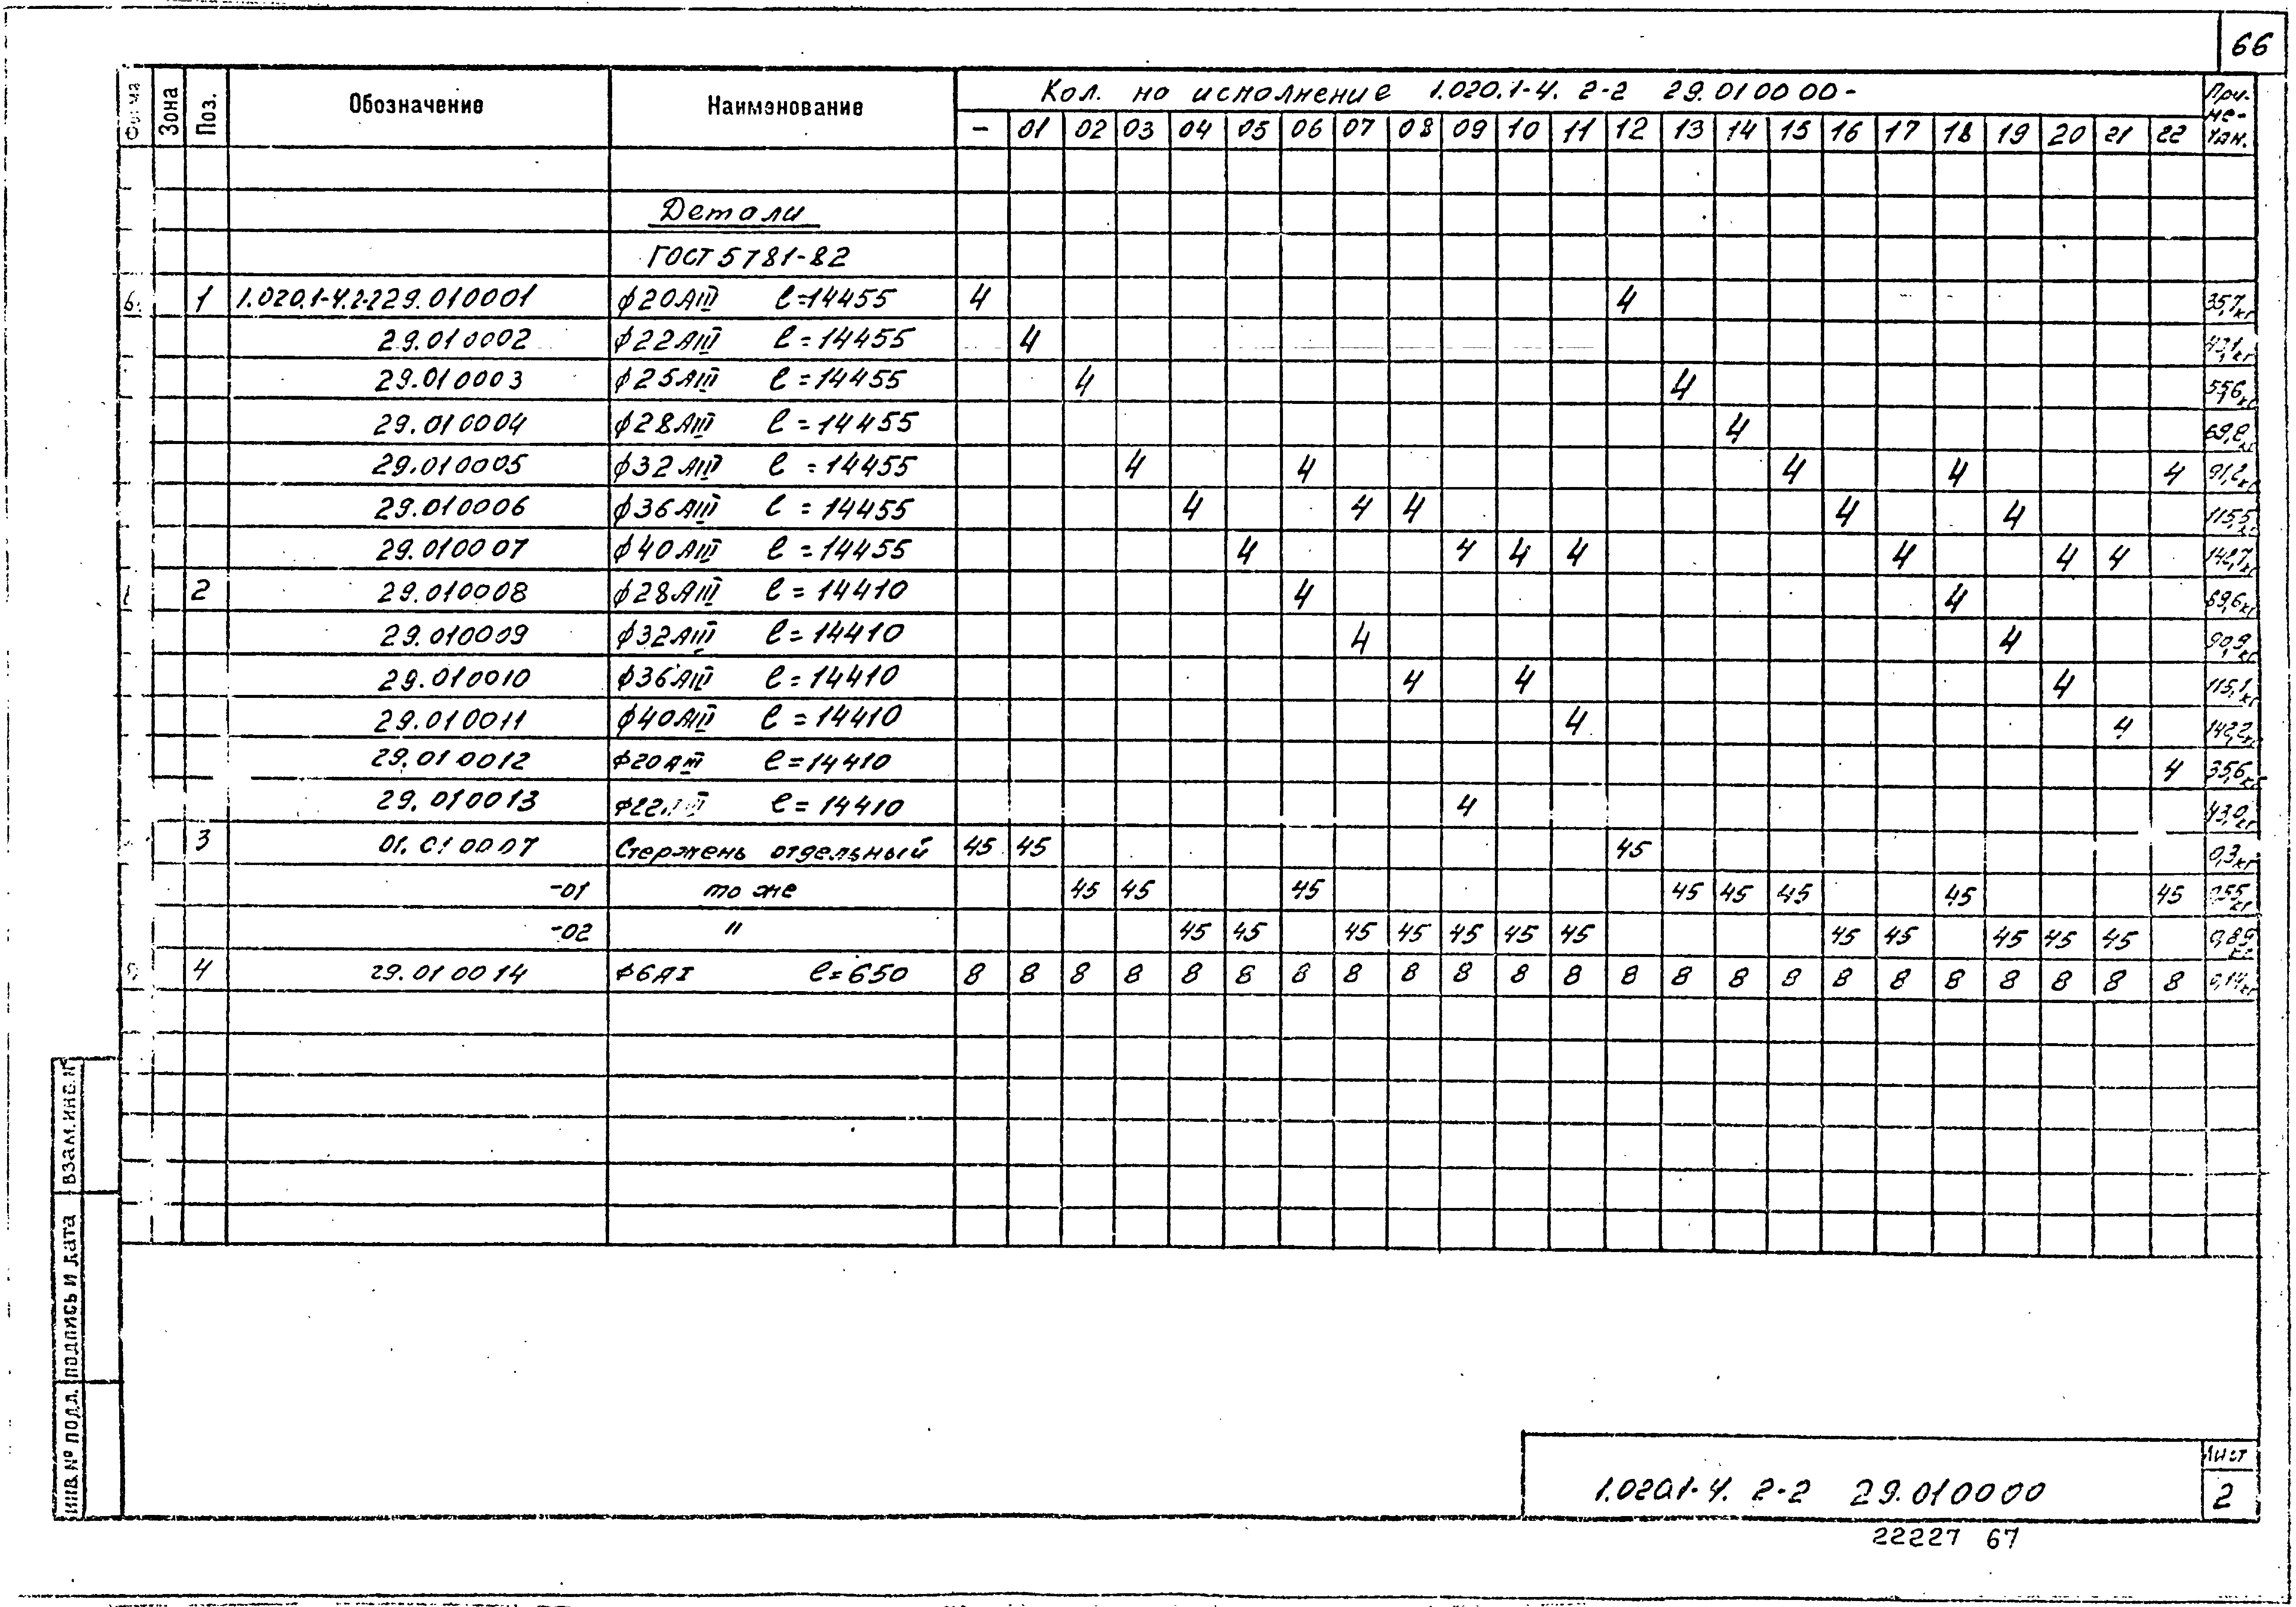 66
Зона Поз. Обозначение Наименование Кол. на исполнение 1.020.1-4. 2-2 29.010000- При-ме-чан.
- 01 02 03 04 05 06 07 08 09 10 11 12 13 14 15 16 17 18 19 20 21 22
Детали
ГОСТ 5781-82
1 1.020.1-4.2-2 29.010001 ф20АIII ℓ=14455 4 4 35,7кг
29.010002 ф22АIII ℓ=14455 4 43,1кг
29.010003 ф25АIII ℓ=14455 4 4 55,6кг
29.010004 ф28АIII ℓ=14455 4 69,8кг
29.010005 ф32АIII ℓ=14455 4 4 4 4 4 91,2кг
29.010006 ф36АIII ℓ=14455 4 4 4 4 4 115,5кг
29.010007 ф40АIII ℓ=14455 4 4 4 4 4 4 4 142,7кг
2 29.010008 ф28АIII ℓ=14410 4 4 69,6кг
29.010009 ф32АIII ℓ=14410 4 4 90,9кг
29.010010 ф36АIII ℓ=14410 4 4 4 115,1кг
29.010011 ф40АIII ℓ=14410 4 4 142,2кг
29.010012 ф20АIII ℓ=14410 4 35,6кг
29.010013 ф22АIII ℓ=14410 4 43,0кг
3 01.010007 Стержень отдельный 45 45 45 0,3кг
-01 то же 45 45 45 45 45 45 45 45 0,55кг
-02 " 45 45 45 45 45 45 45 45 45 45 45 45 0,89кг
4 29.010014 ф6АI ℓ=650 8 8 8 8 8 8 8 8 8 8 8 8 8 8 8 8 8 8 8 8 8 8 8 0,14кг
ВЗАМ.ИНВ.№
ПОДПИСЬ И ДАТА
ИНВ.№ ПОДЛ.
1.020.1-4. 2-2 29.010000
Лист
2
22227 67